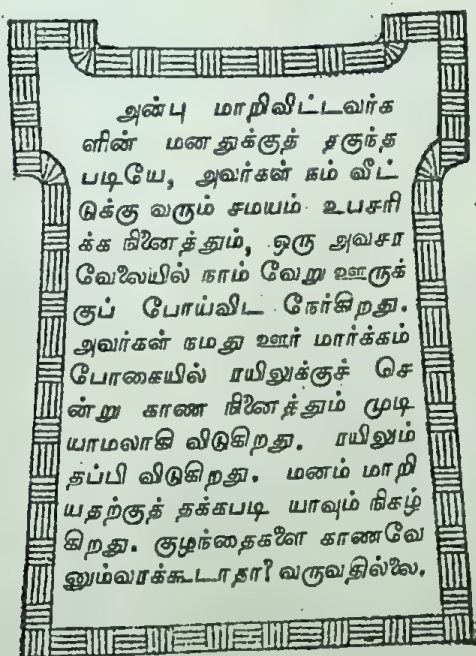 அன்பு மாறிவிட்டவர்க
ளின் மனதுக்குத் தகுந்த
படியே, அவர்கள் நம் வீட்
டுக்கு வரும் சமயம் உபசரி
க்க நினைத்தும், ஒரு அவசர
வேலையில் நாம் வேறு ஊருக்
குப் போய்விட நேர்கிறது.
அவர்கள் நமது ஊர் மார்க்கம்
போகையில் ரயிலுக்குச் செ
ன்று காண நினைத்தும் முடி
யாமலாகி விடுகிறது. ரயிலும்
தப்பி விடுகிறது. மனம் மாறி
யதற்குத் தக்கபடி யாவும் நிகழ்
கிறது. குழந்தைகளை காணவே
னும்வரக்கூடாதா? வருவதில்லை.